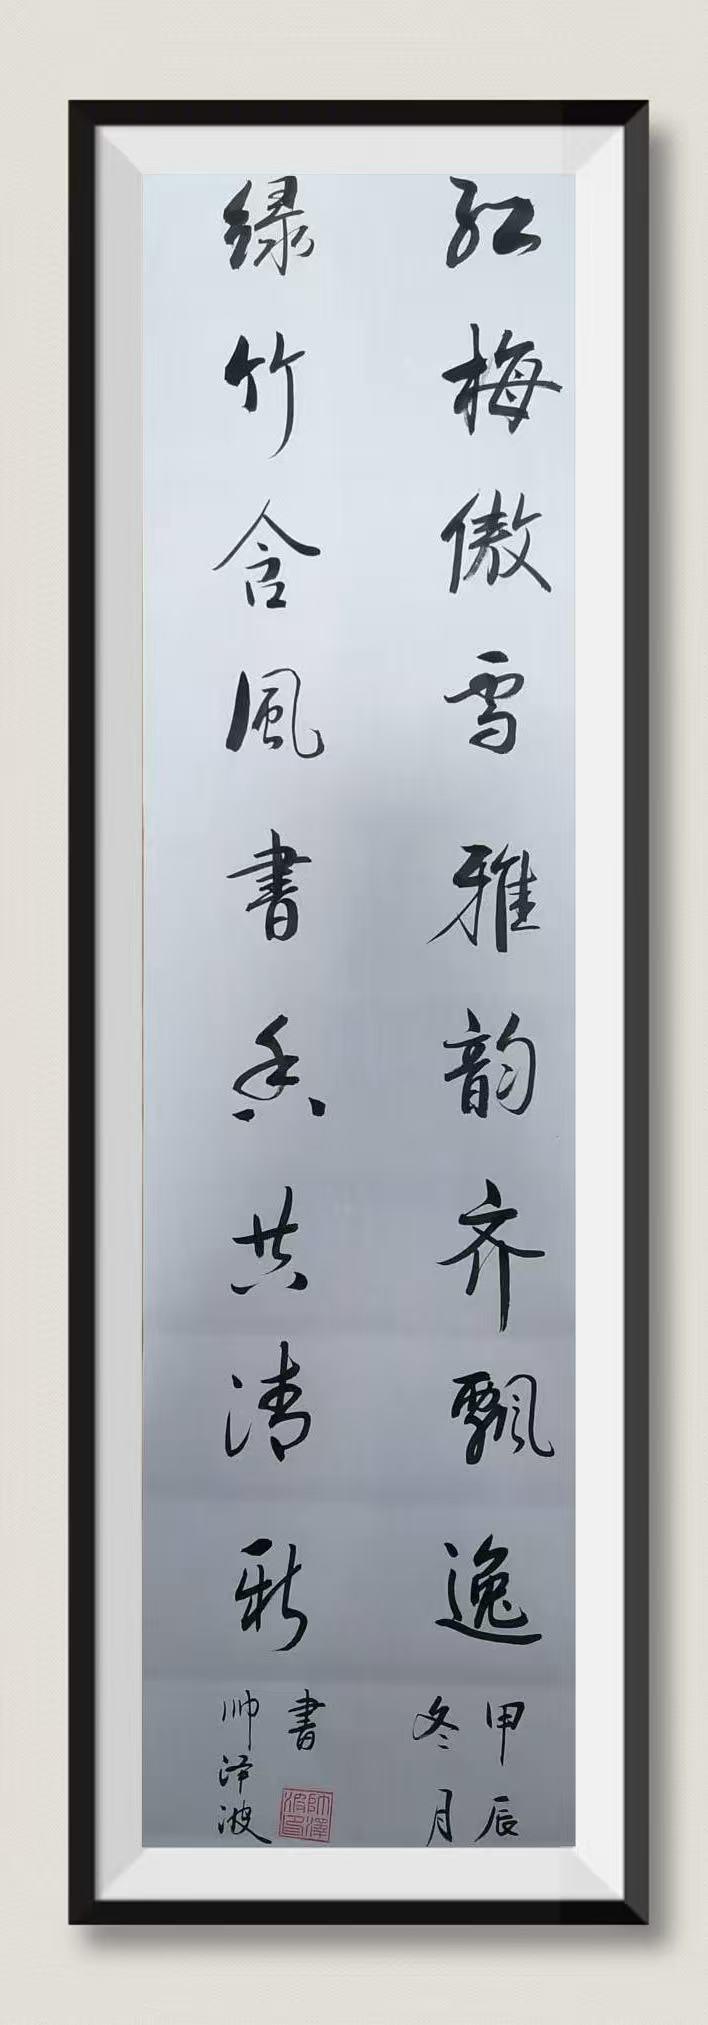 红梅傲雪雅韵齐飘逸
甲辰
冬月
绿竹含風書香共清新
書
帅泽波
帅澤波印